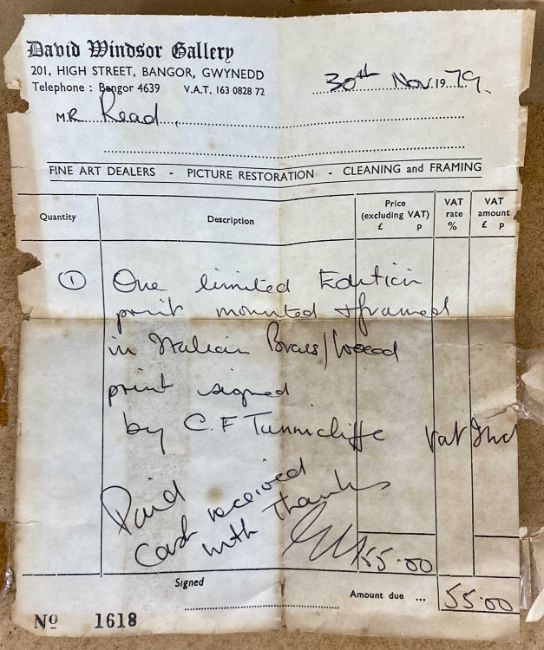 David Windsor Gallery
201, HIGH STREET, BANGOR, GWYNEDD
Telephone : Bangor 4639 V.A.T. 163 0828 72
30th Nov. 1979.
MR Read.
FINE ART DEALERS - PICTURE RESTORATION - CLEANING and FRAMING
Quantity Description Price (excluding VAT) £ p VAT rate % VAT amount £ p
① One limited Edition
print mounted & framed
in Italian Brass/wood
print signed
by C.F Tunnicliffe Vat Incl
Paid
Cash received
with Thanks
55.00
Signed
Amount due ... 55.00
Nº 1618